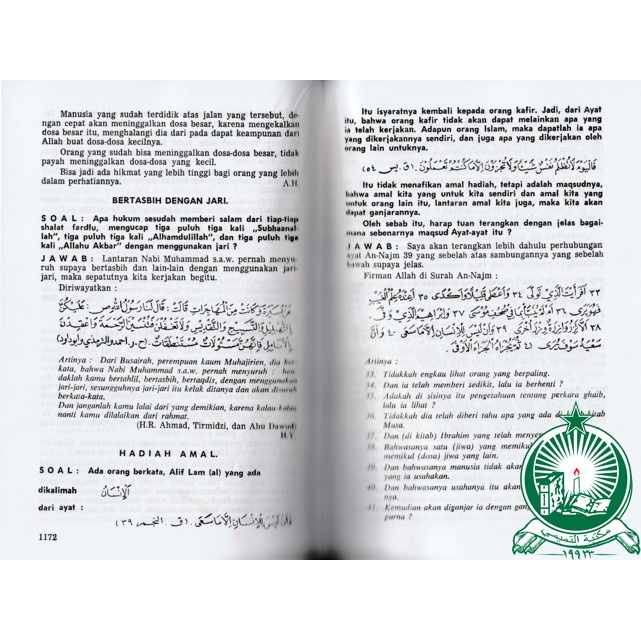 Manusia yang sudah terdidik atas jalan yang tersebut, de-
ngan cepat akan meninggalkan dosa besar, karena mengekalkan
dosa besar itu, menghalangi dia dari pada keampunan dari
Allah buat dosa-dosa kecilnya.
Orang yang sudah bisa meninggalkan dosa-dosa besar, tidak
payah meninggalkan dosa-dosa yang kecil.
Bisa jadi ada hikmat yang lebih tinggi bagi orang yang lebih
dalam perhatiannya. A.H.
BERTASBIH DENGAN JARI.
SOAL: Apa hukum sesudah memberi salam dari tiap-tiap
shalat fardlu, mengucap tiga puluh tiga kali „Subhaanal-
lah", tiga puluh tiga kali „Alhamdulillah", dan tiga puluh tiga
kali „Allahu Akbar" dengan menggunakan jari ?
JAWAB: Lantaran Nabi Muhammad s.a.w. pernah menyu-
ruh supaya bertasbih dan lain-lain dengan menggunakan jari-
jari, maka sepatutnya kita kerjakan begitu.
Diriwayatkan :
Artinya : Dari Busairah, perempuan kaum Muhajirien, dia ber-
kata, bahwa Nabi Muhammad s.a.w. pernah menyuruh : hen-
daklah kamu bertahlil, bertasbih, bertaqdis, dengan menggunakan
jari-jari, sesungguhnya jari-jari itu kelak ditanya dan akan disuruh
berkata-kata.
Dan janganlah kamu lalai dari yang demikian, karena kalau kalau
nanti kamu dilalaikan dari rahmat.
(H.R. Ahmad, Tirmidzi, dan Abu Dawud)
HADIAH AMAL.
SOAL: Ada orang berkata, Alif Lam (al) yang ada
dikalimah الإنسان
dari ayat :
وأن ليس للإنسان إلا ما سعى. (ق. النجم ٣٩)
1172
Itu isyaratnya kembali kepada orang kafir. Jadi, dari Ayat
itu, bahwa orang kafir tidak akan dapat melainkan apa yang
ia telah kerjakan. Adapun orang Islam, maka dapatlah ia apa
yang dikerjakannya sendiri, dan juga apa yang dikerjakan oleh
orang lain untuknya.
فاليوم لا تظلم نفس شيئا ولا تجزون إلا ما كنتم تعملون. (ق. يس ٥٤)
Itu tidak menafikan amal hadiah, tetapi adalah maqsudnya,
bahwa amal yang untuk kita sendiri dan amal kita yang
untuk orang lain itu, lantaran amal kita juga, maka kita akan
dapat ganjarannya.
Oleh sebab itu, harap tuan terangkan dengan jelas bagai-
mana sebenarnya maqsud Ayat-ayat itu ?
JAWAB: Saya akan terangkan lebih dahulu perhubungan
ayat An-Najm 39 yang sebelah atas sambungannya yang sebelah
bawah supaya jelas.
Firman Allah di Surah An-Najm :
٣٣ أفرأيت الذي تولى ٣٤ وأعطى قليلا وأكدى ٣٥ أعنده علم الغيب
Artinya :
33. Tidakkah engkau lihat orang yang berpaling.
34. Dan ia telah memberi sedikit, lalu ia berhenti ?
35. Adakah di sisinya itu pengetahuan tentang perkara ghaib,
lalu ia lihat ?
36. Tidakkah dia telah diberi tahu apa yang ada di kitab
Musa.
37. Dan (di kitab) Ibrahim yang telah
38. Bahwasanya satu (jiwa) yang
memikul (dosa) jiwa yang lain.
39. Dan bahwasanya manusia tidak akan
yang ia usahakan.
40. Dan bahwasanya usahanya itu akan
nya.
41. Kemudian akan diganjar ia dengan
purna ?
مكتبة التميمي
١٩٩٣